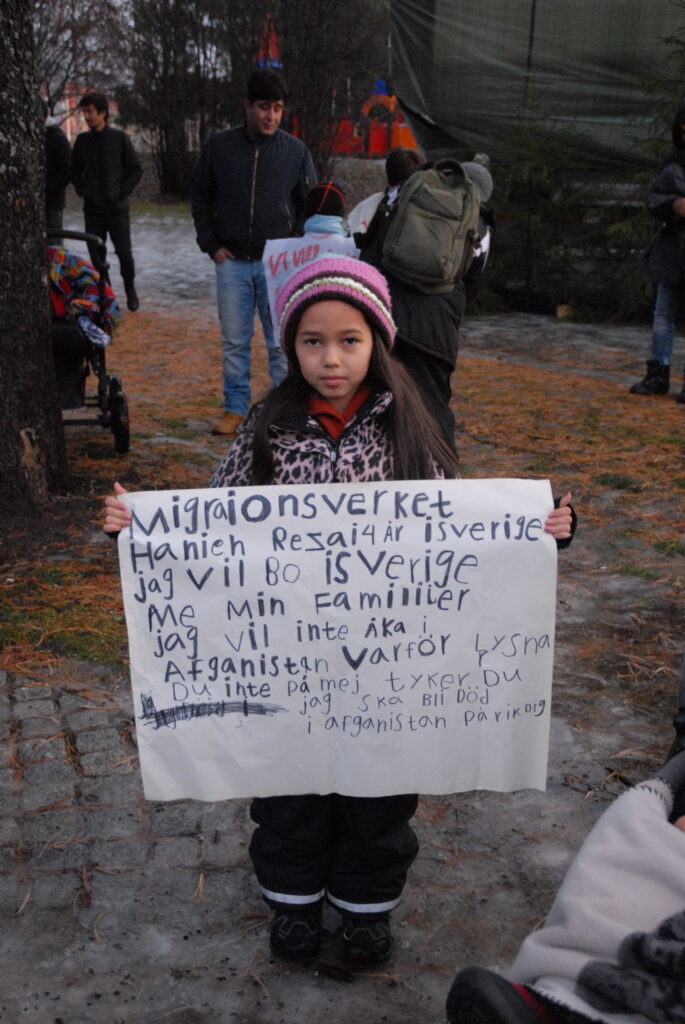 Vi vill
Migraionsverket
Hanieh Rezai 4 År isverige
jag vil Bo isverige
Me Min Familiier
jag vil inte åka i
Afganistan varför Lysna
Du inte på mej tyker Du
jag ska Bli Död
i afganistan På rikDig